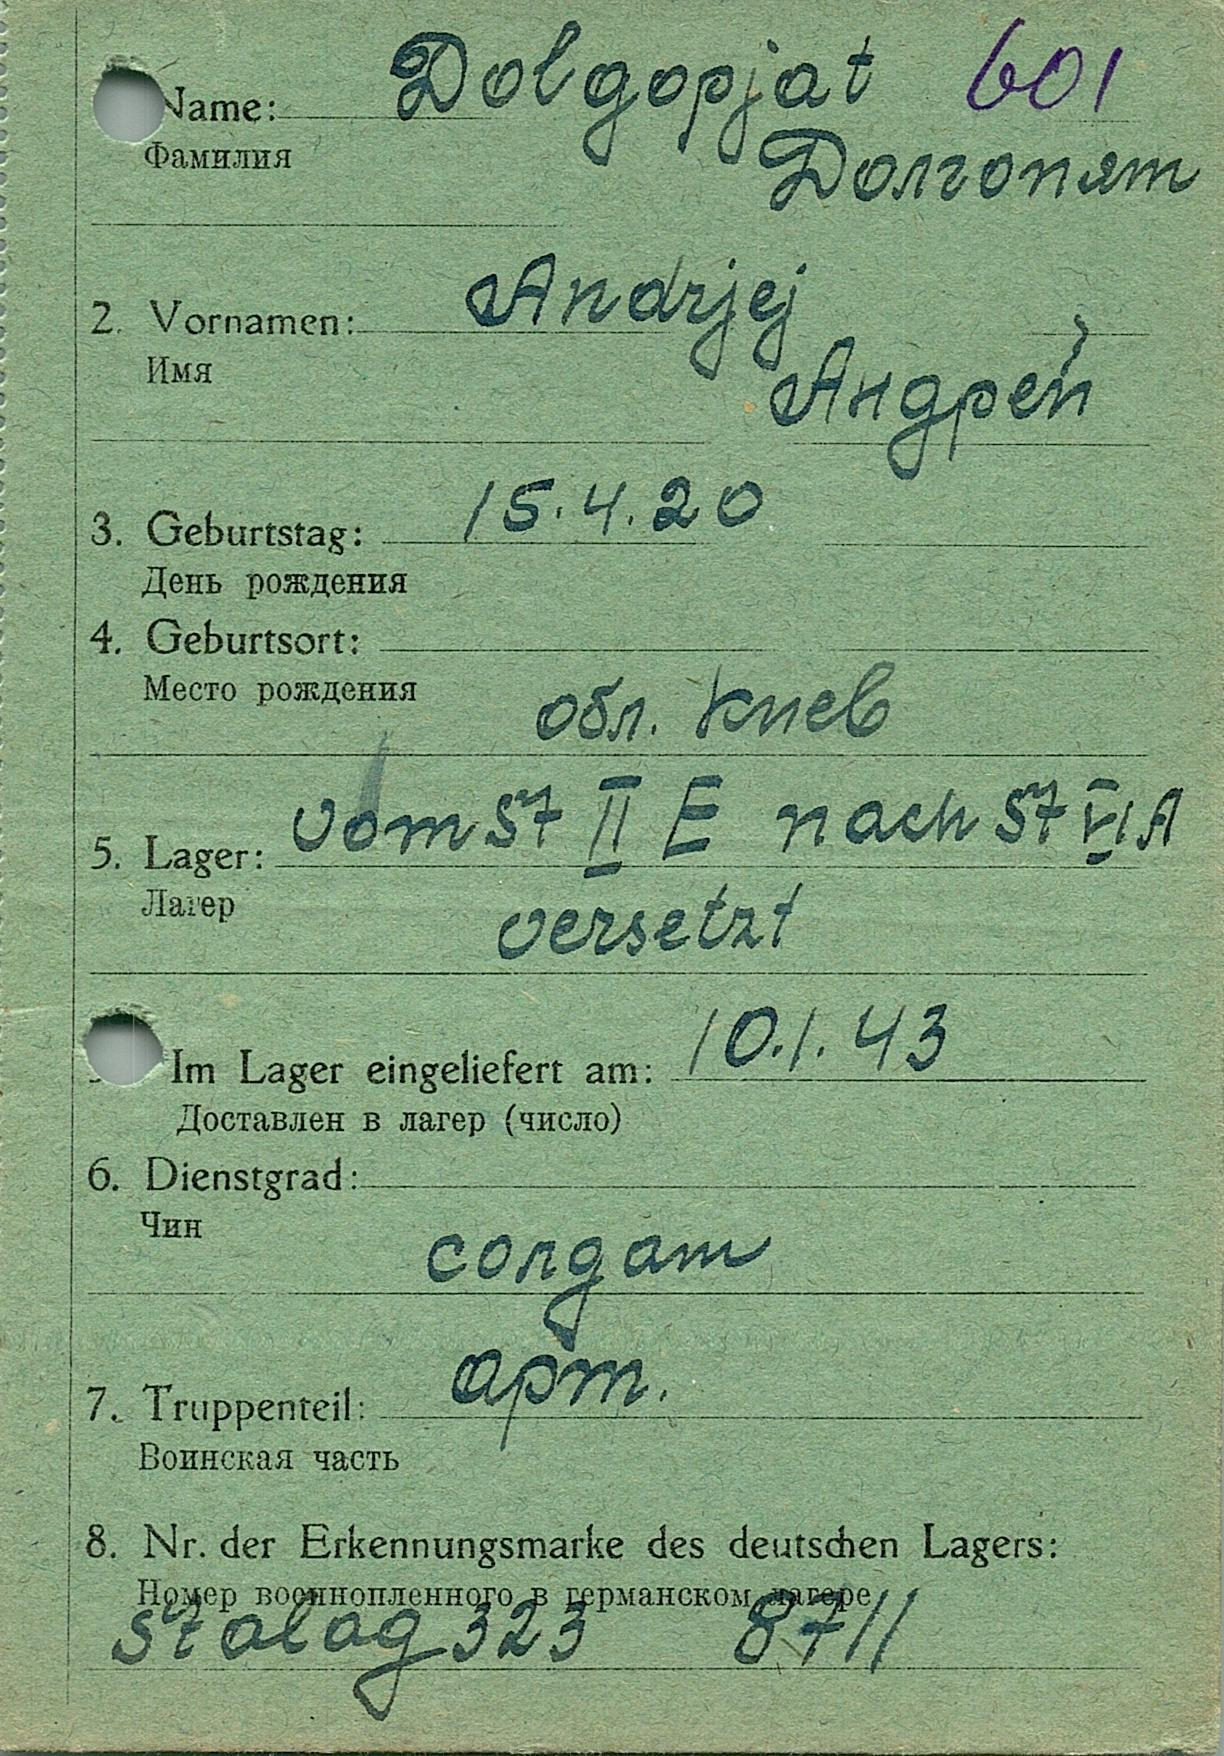 Dolgopjat 601
Name:
Фамилия
Долгопят
Andrjej
2. Vornamen:
Имя
Андрей
3. Geburtstag: 15.4.20
День рождения
4. Geburtsort:
Место рождения
обл. Киев
5. Lager: vom St II E nach St VI A
Лагер
versetzt
Im Lager eingeliefert am: 10.1.43
Доставлен в лагер (число)
6. Dienstgrad:
Чин
солдат
7. Truppenteil: арт.
Воинская часть
8. Nr. der Erkennungsmarke des deutschen Lagers:
Номер военнопленного в германском лагере
Stalag 323 8711